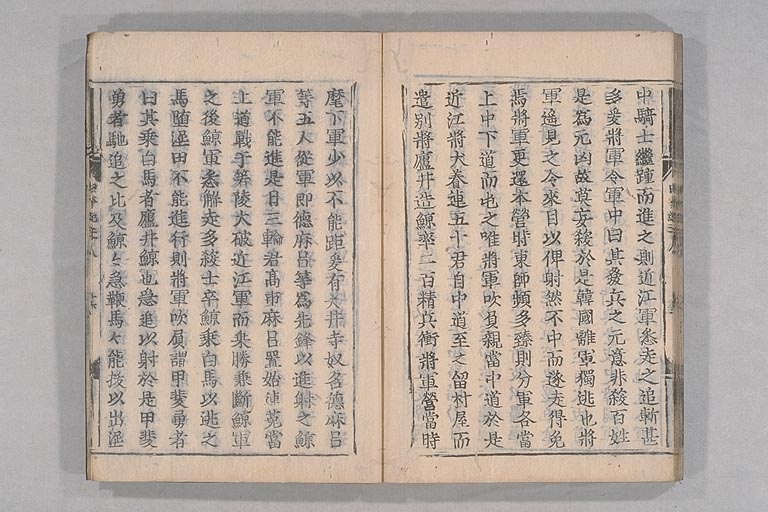 中騎士繼踵而進之則近江軍悉走之追斬甚
多爰將軍令軍中曰其發兵之元意非殺百姓
是爲元凶故莫妄殺於是韓國離軍獨逃也將
軍遙見之令來目以俾射然不中而遂走得免
焉將軍更還本營時東師頻多臻則分軍各當
上中下道而屯之唯將軍吹負親當中道於是
近江將犬養連五十君自中道至之留村屋而
遣別將廬井造鯨率二百精兵衝將軍營當時
麾下軍少以不能距爰有大井寺奴名德麻呂
等五人從軍即德麻呂等爲先鋒以進射之鯨
軍不能進是日三輪君髙市麻呂置始連菟當
上道戰于箸陵大破近江軍而乘勝兼斷鯨軍
之後鯨軍悉解走多殺士卒鯨乘白馬以逃之
馬隨涇田不能進行則將軍吹負謂甲斐勇者
曰其乘白馬者廬井鯨也急追以射於是甲斐
勇者馳追之比及鯨々急鞭馬々能拔以出涇